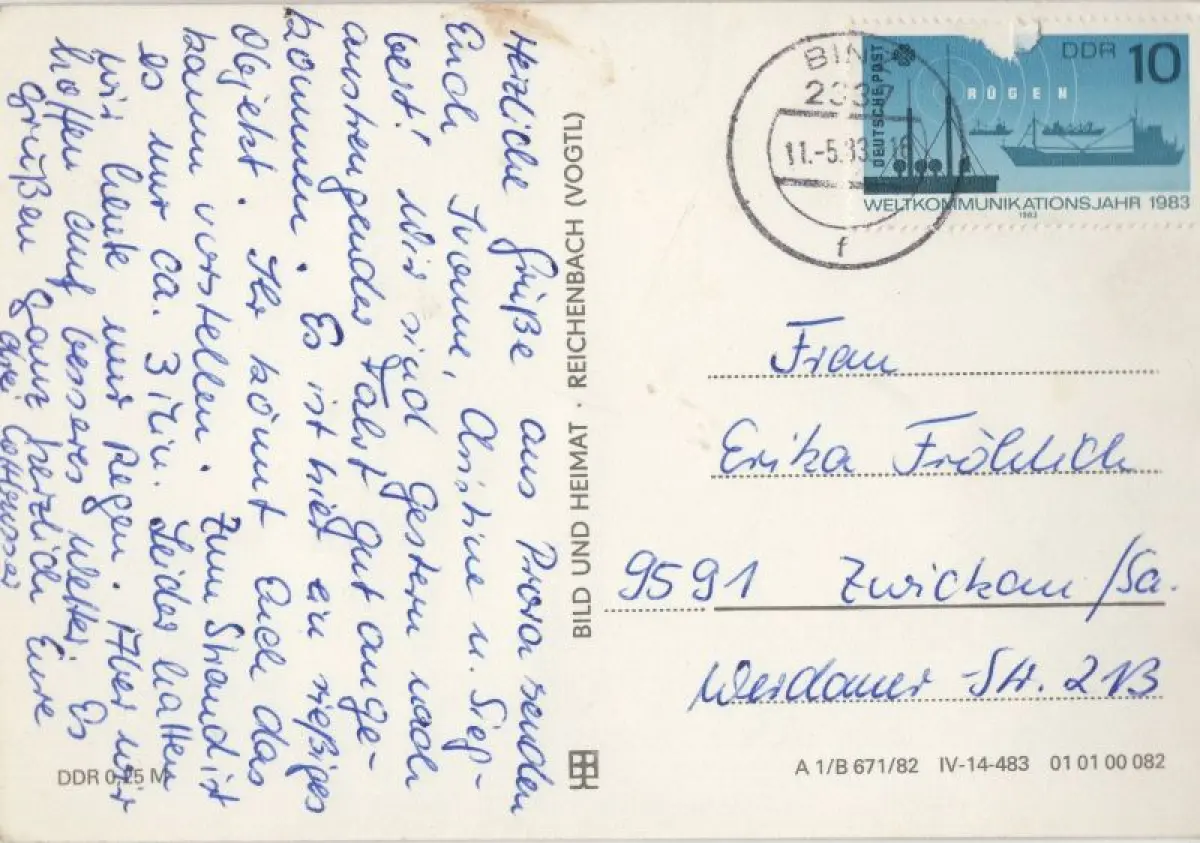 Herzliche Grüße aus Prora senden
Euch Ivonne, Christine u. Sieg-
bert! Wir sind gestern nach
anstrengender Fahrt gut ange-
kommen. Es ist hier ein rießiges
Objekt. Ihr könnt Euch das
kaum vorstellen. Zum Strand ist
es nur ca. 3 Min. Leider hatten
wir heute nur Regen. Aber wir
hoffen auf besseres Wetter. Es
grüßen ganz herzlich Eure
drei Cottbusser
DDR 0,25 M
BILD UND HEIMAT · REICHENBACH (VOGTL)
BINZ
11.-5.83
f
DEUTSCHE POST
DDR 10
RÜGEN
WELTKOMMUNIKATIONSJAHR 1983
1983
Frau
Erika Fröhlich
9591 Zwickau/Sa.
Werdauer-Str. 21B
A 1/B 671/82 IV-14-483 01 01 00 082